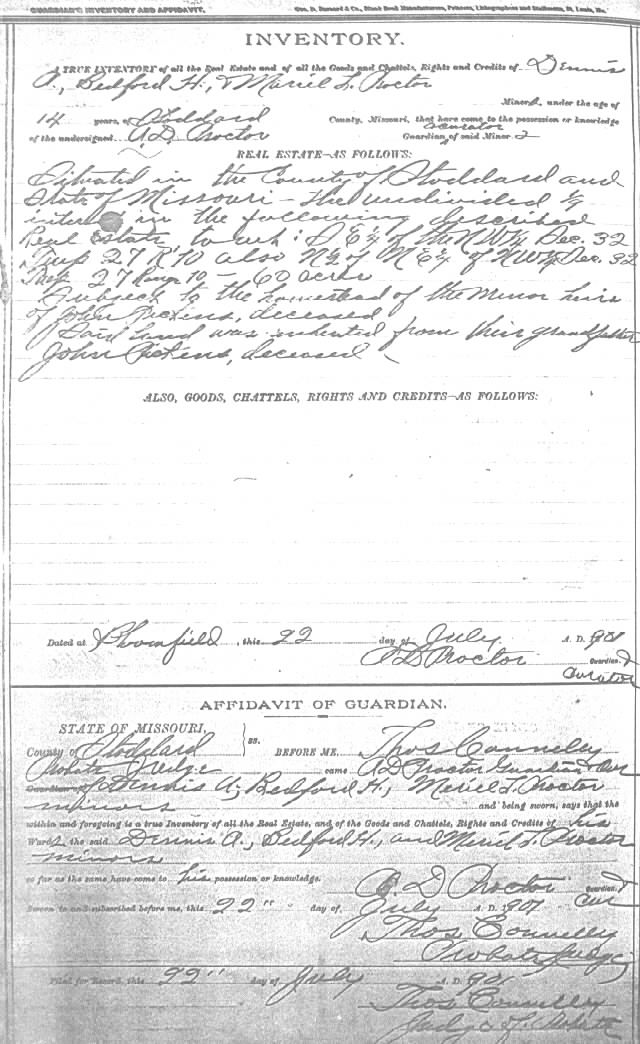 GUARDIAN'S INVENTORY AND AFFIDAVIT. Geo. D. Barnard & Co., Blank Book Manufacturers, Printers, Lithographers and Stationers, St. Louis, Mo.
INVENTORY.
A TRUE INVENTORY of all the Real Estate and of all the Goods and Chattels, Rights and Credits of Dennis
A., Bedford H., & Meriel L. Proctor
Minors, under the age of
14 years, of Stoddard County, Missouri, that have come to the possession or knowledge
of the undersigned A D Proctor Guardian & Curator of said Minors
REAL ESTATE—AS FOLLOWS:
Situated in the County of Stoddard and
State of Missouri – the undivided
interest in the following described
Real Estate to wit: S E¼ of the N W¼ Sec. 32
Twp 27 R 10 also N½ of N E¼ of N W¼ Sec. 32
Twp 27 Range 10 – 60 acres
Subject to the homestead of the Minor heirs
of John Pickins, deceased
Said land was inherited from their grandfather
John Pickins, deceased
ALSO, GOODS, CHATTELS, RIGHTS AND CREDITS—AS FOLLOWS:
Dated at Bloomfield, this 22 day of July A. D. 1901
A D Proctor Guardian &
Curator
AFFIDAVIT OF GUARDIAN.
STATE OF MISSOURI,
County of Stoddard ss. BEFORE ME, Thos Connelley
Probate Judge came A D Proctor Guardian & Cur
of Dennis A., Bedford H., Meriel L. Proctor
minors and being sworn, says that the
within and foregoing is a true Inventory of all the Real Estate, and of the Goods and Chattels, Rights and Credits of his
Wards the said Dennis A., Bedford H., and Meriel L. Proctor
minors
so far as the same have come to his possession or knowledge.
A D Proctor Guardian &
Cur
Sworn to and subscribed before me, this 22" day of July A. D. 1901
Thos Connelley
Probate Judge
Filed for Record, this 22" day of July A. D. 1901
Thos Connelley
Judge of Probate